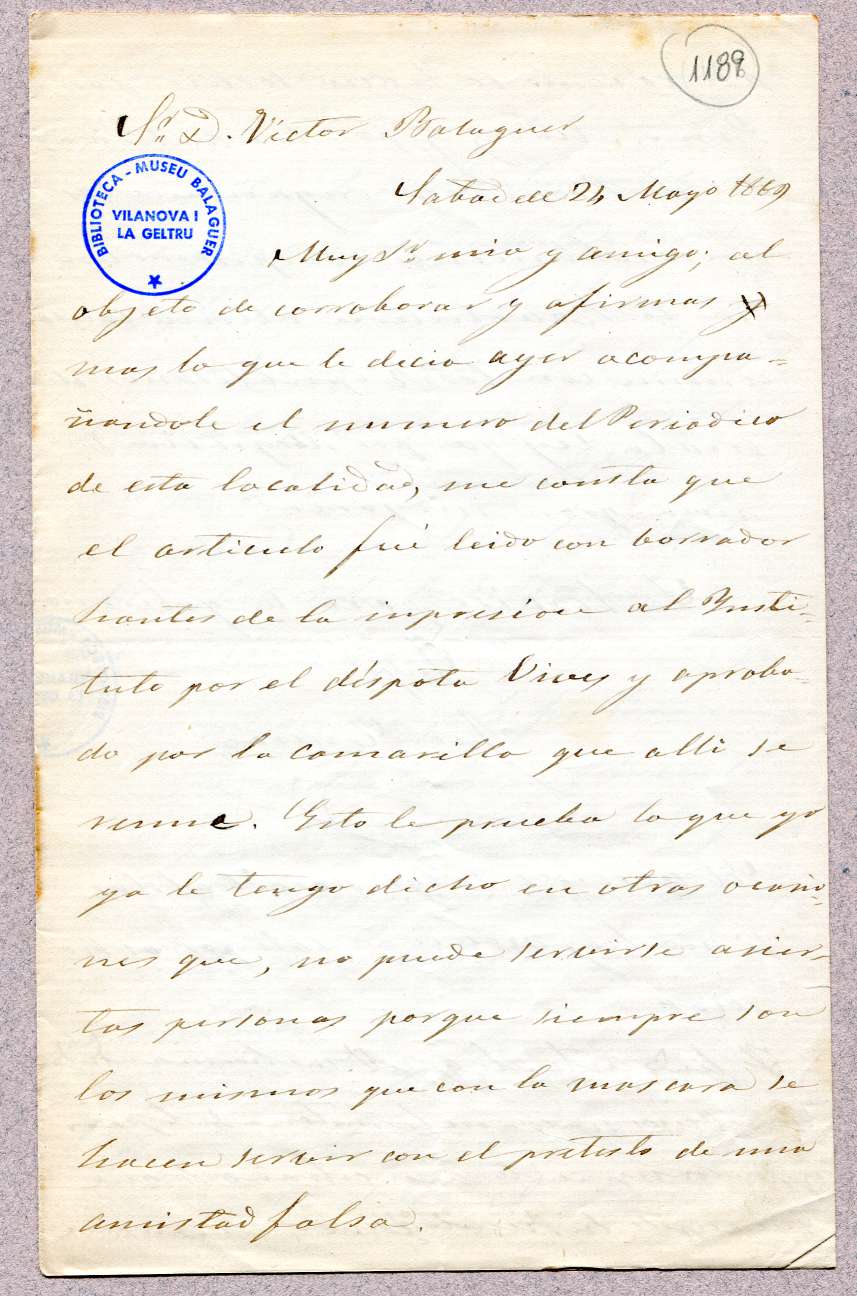 1188
Sr. D. Victor Balaguer
BIBLIOTECA - MUSEU BALAGUER
VILANOVA I
LA GELTRU
Sabadell 24 Mayo 1869
Muy Sr. mio y amigo; al
objeto de corroborar y afirmas
mas lo que le decia ayer acompa=
ñandole el numero del Periodico
de esta localidad, me consta que
el articulo fué leido con borrador
hantes de la inpresion al Ynsti-
tuto por el déspota Vives y aproba-
do por la camarilla que alli se
reune. Esto le prueba lo que yo
ya le tengo dicho en otras ocasio-
nes que, no puede servirse a cier-
tas personas porque siempre son
los mismos que con la mascara se
hacen servir con el pretesto de una
amistad falsa.